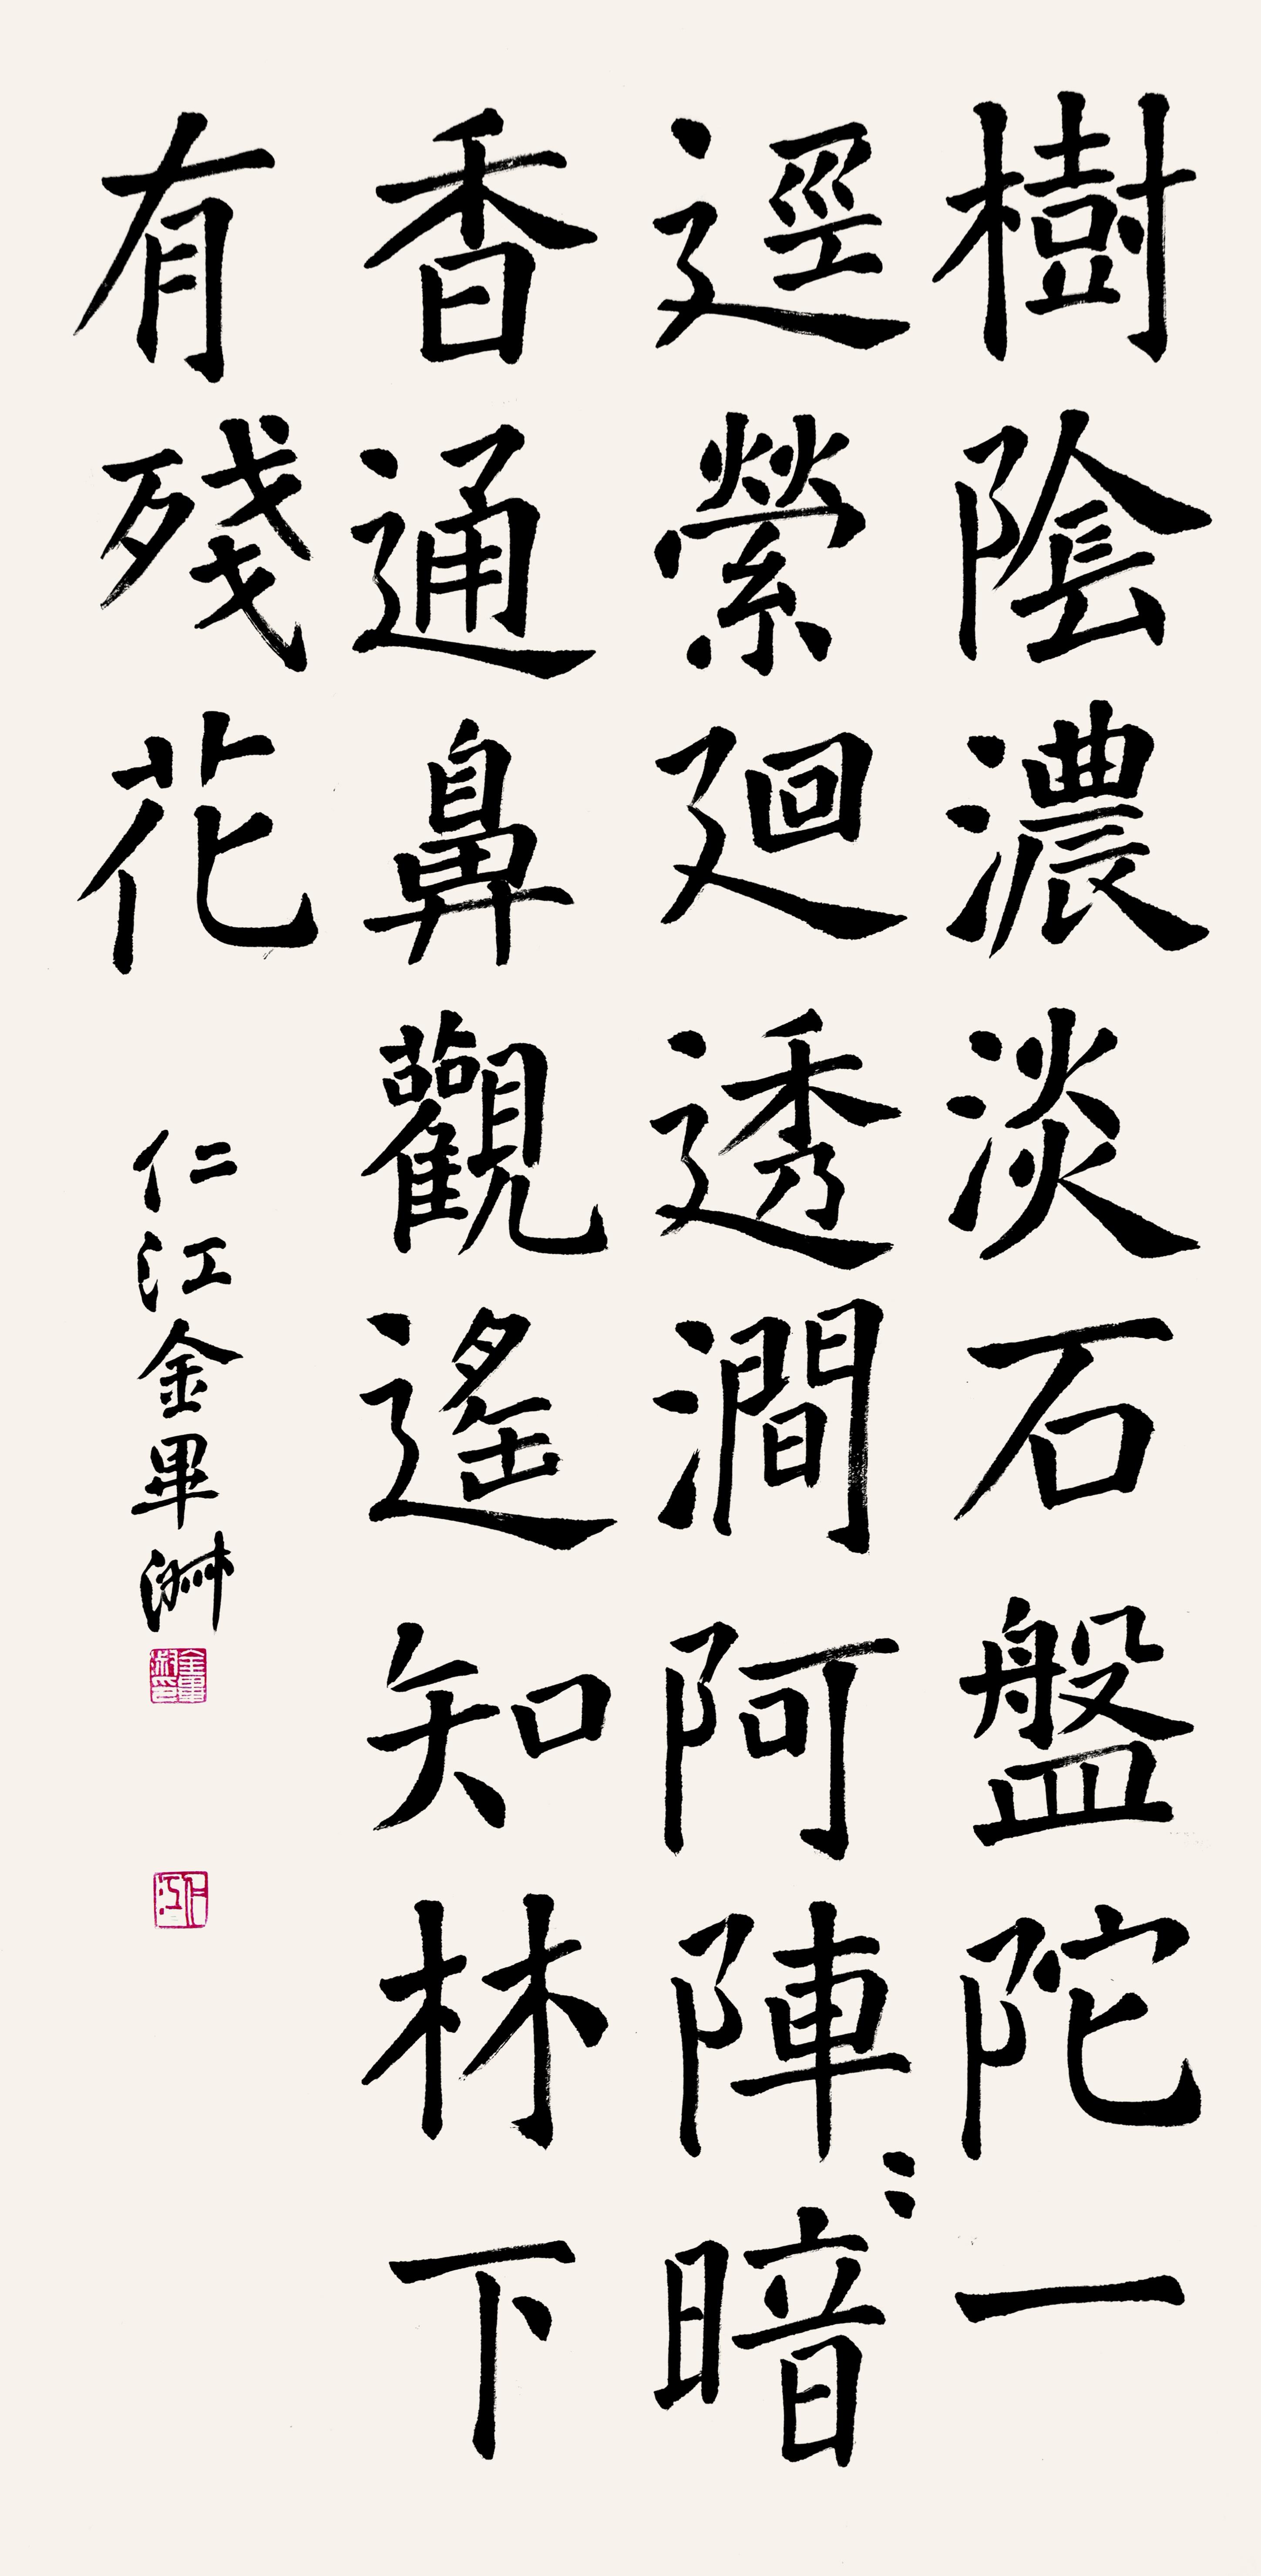 樹陰濃淡石盤陀一
逕縈廻透澗阿陣〻暗
香通鼻觀遙知林下
有殘花
仁江金畢淋
仁江